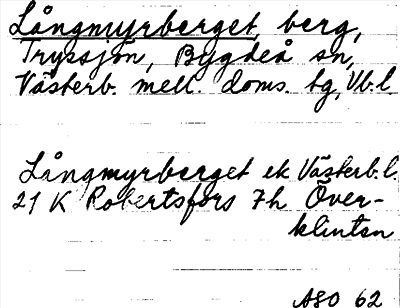 Långmyrberget, berg,
Tryssjön, Bygdeå sn,
Västerb. mell. doms. tg, Vb.l.
Långmyrberget ek Västerb.l.
21 K Robertsfors 7h Över-
klintan
ASO 62